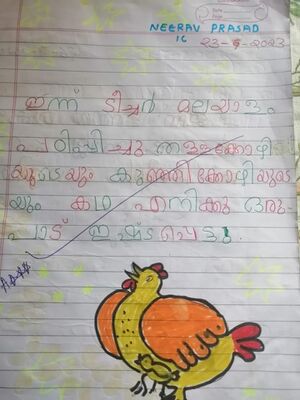 NEERAV PRASAD
1C
23-6-2023
ഇന്ന് ടീച്ചർ മലയാളം
പഠിപ്പിച്ചു തള്ളക്കോഴി
യുടെയും കുഞ്ഞിക്കോഴിയുടെ
യും കഥ എനിക്കു ഒരു-
പാട് ഇഷ്ടപ്പെട്ടു.